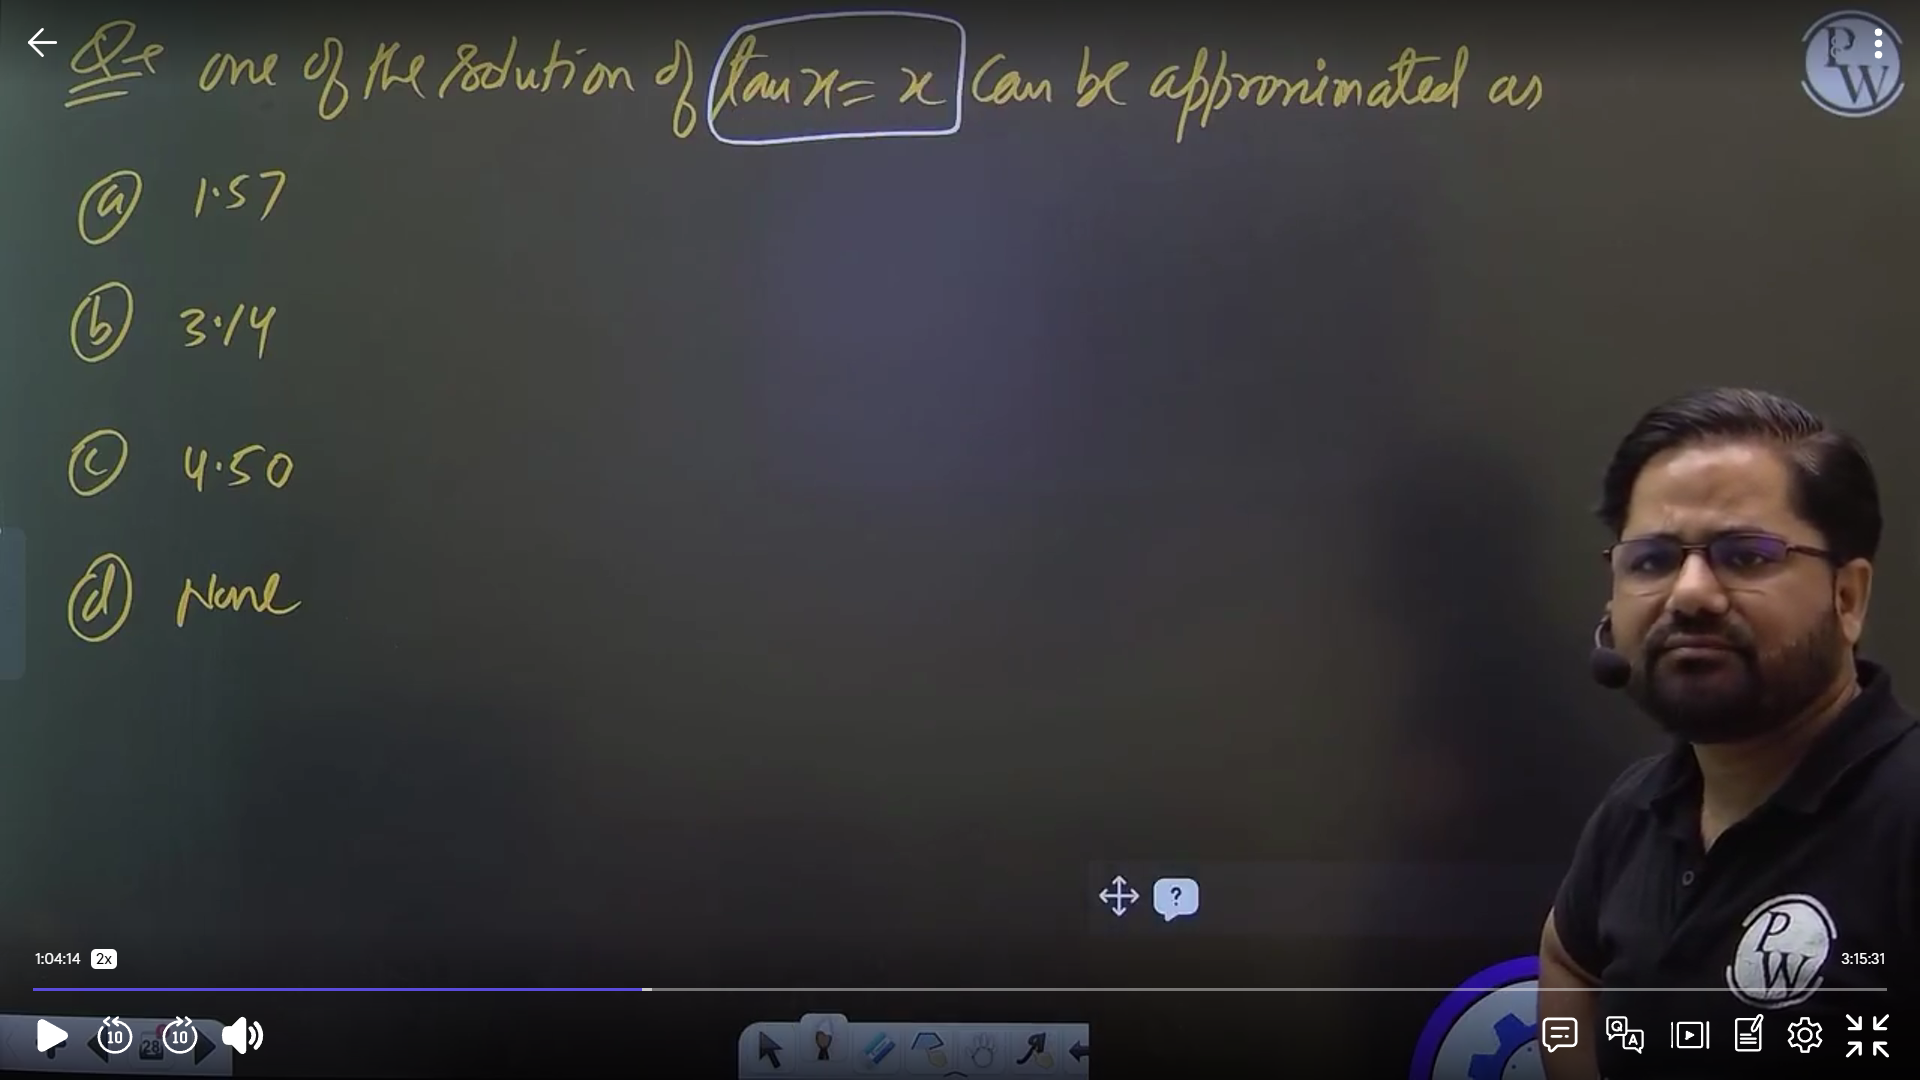 Qe one of the solution of tan x = x can be approximated as
P
W
(a) 1.57
(b) 3.14
(c) 4.50
(d) None
?
P
W
1:04:14 2x
3:15:31
10 28 10
Q A